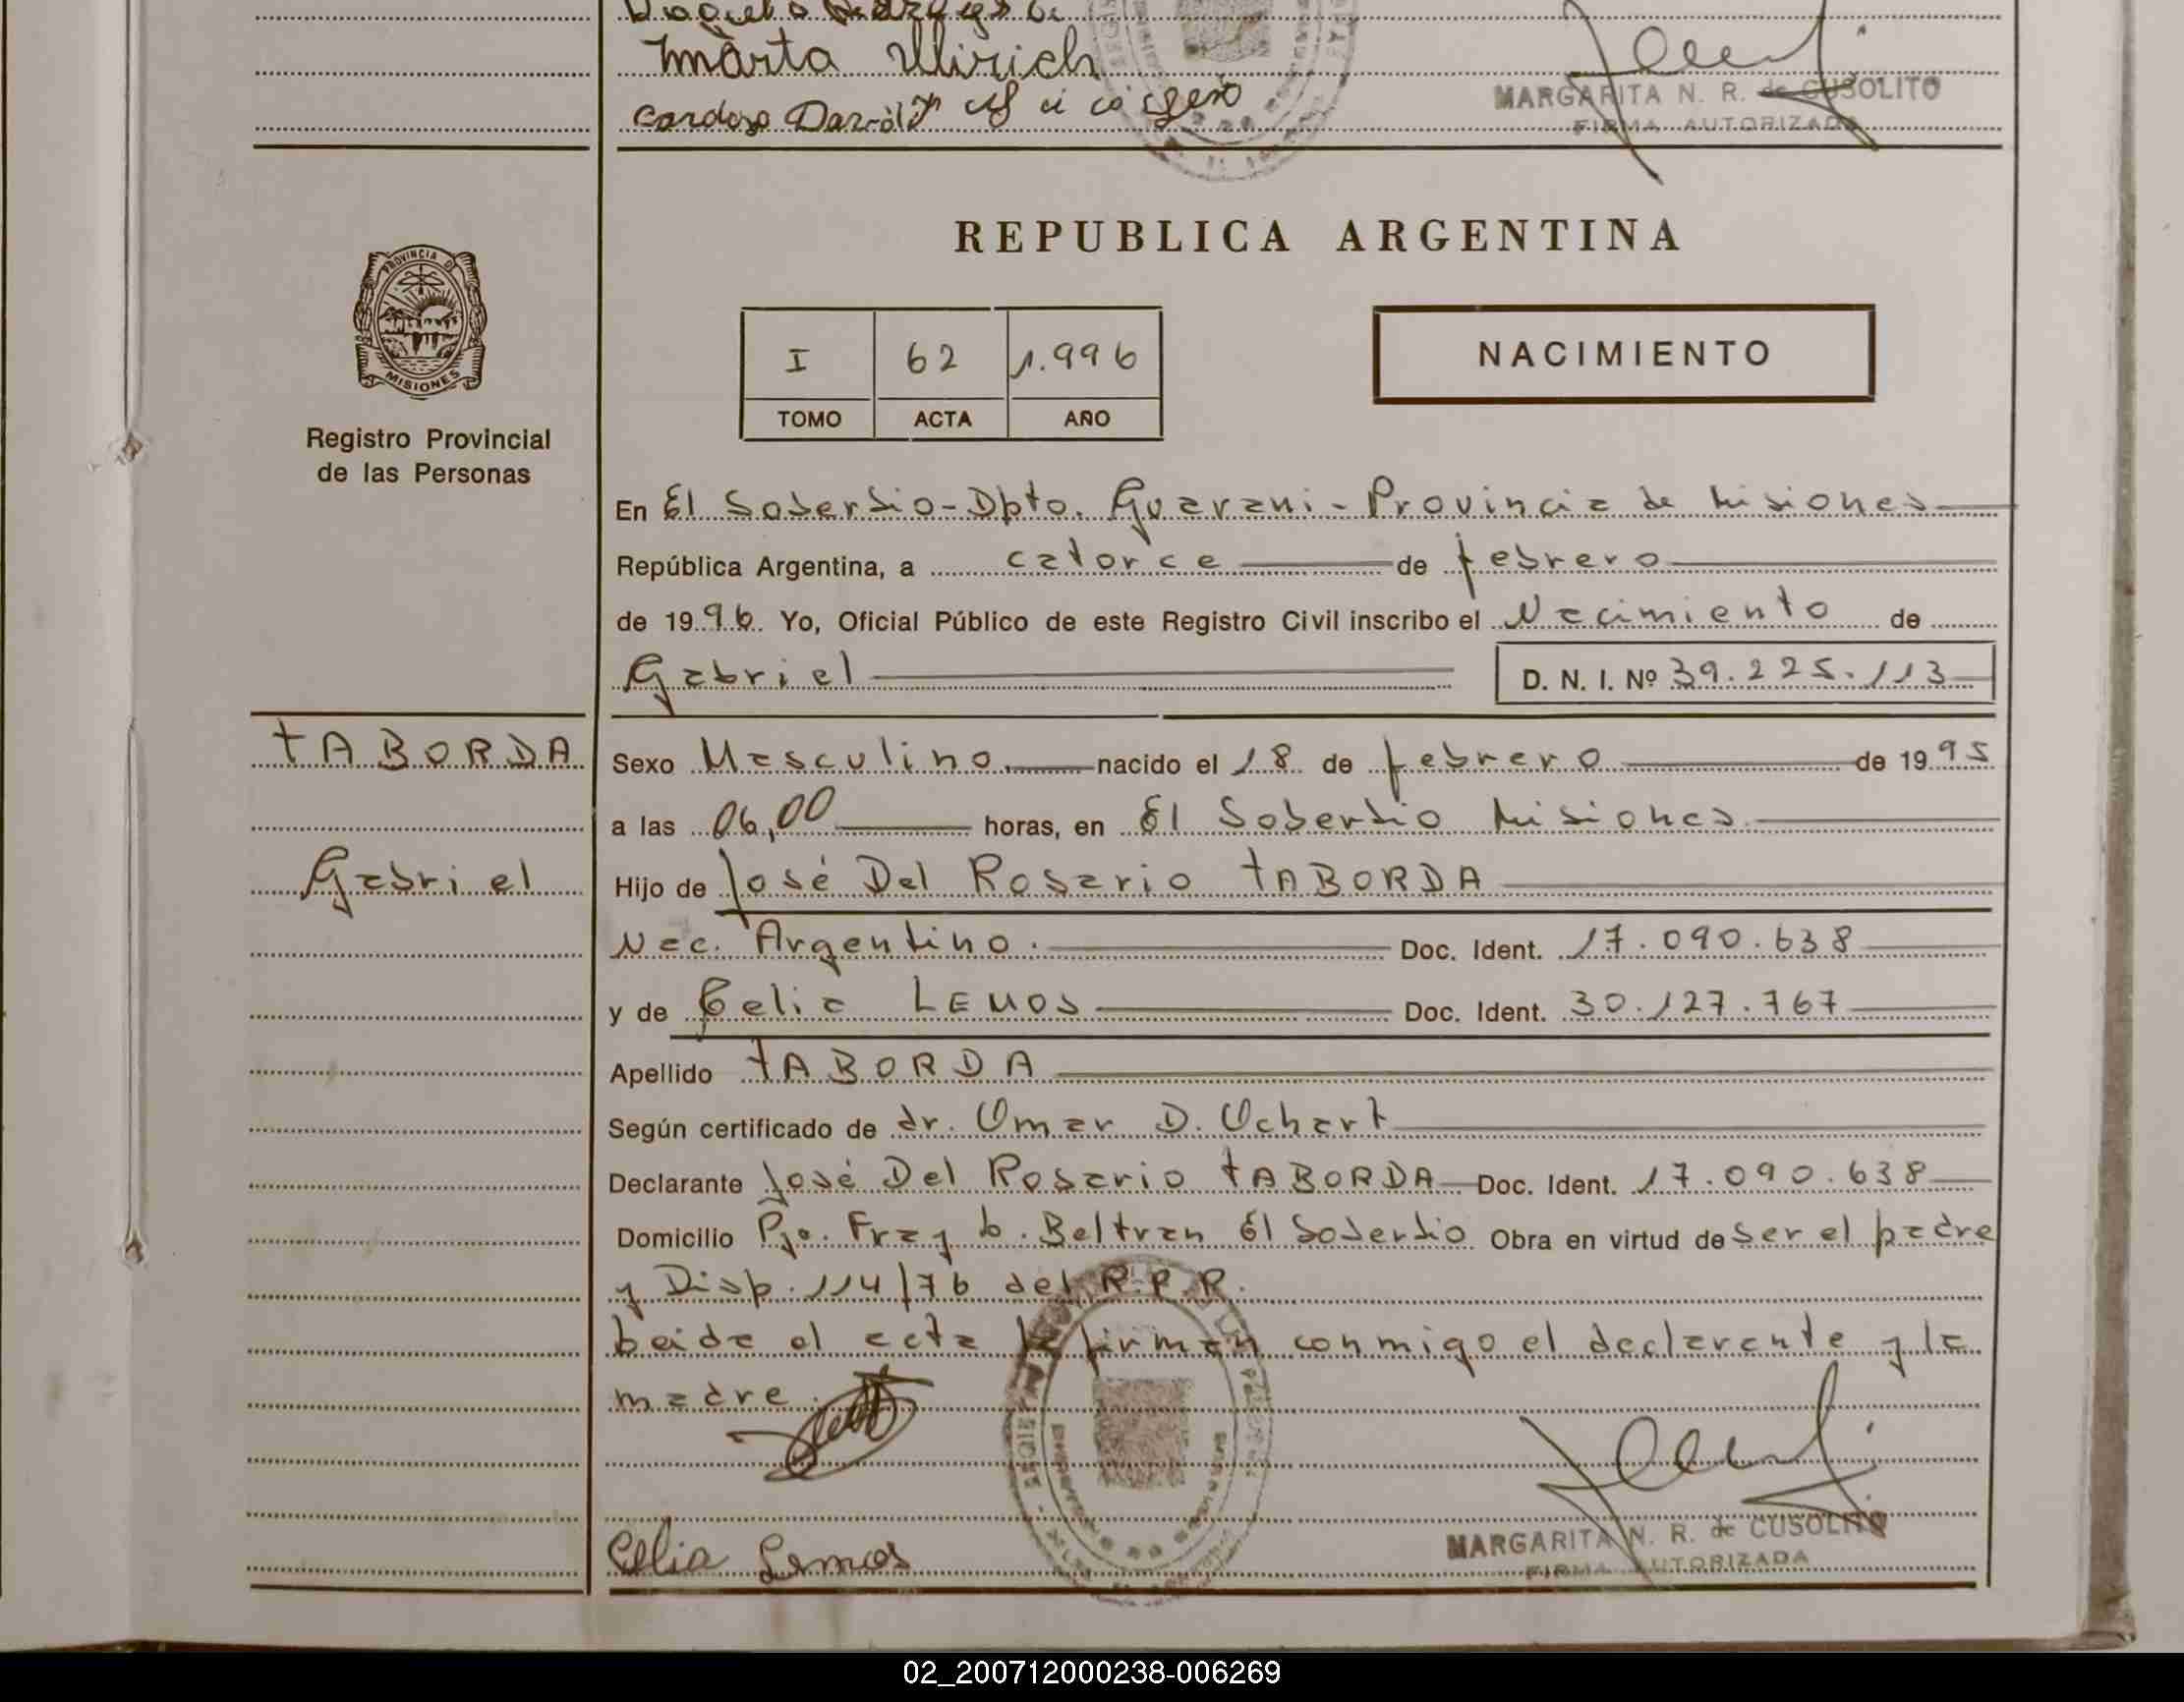 Marta Ullrich
Cardozo Dario
MARGARITA N. R. de CUSOLITO
FIRMA AUTORIZADA
REPUBLICA ARGENTINA
PROVINCIA DE
MISIONES
Registro Provincial
de las Personas
I 62 1.996
TOMO ACTA AÑO
NACIMIENTO
En El Soberbio - Dpto. Guarani - Provincia de Misiones
República Argentina, a catorce de febrero
de 1996 Yo, Oficial Público de este Registro Civil inscribo el Nacimiento de
Gabriel D. N. I. Nº 39.225.113
TABORDA
Sexo Masculino. nacido el 18 de febrero de 1995
a las 06,00 horas, en El Soberbio Misiones
Gabriel
Hijo de José Del Rosario TABORDA
Nac. Argentino. Doc. Ident. 17.090.638
y de Celia LEMOS Doc. Ident. 30.127.767
Apellido TABORDA
Según certificado de dr. Omar D. Uchart
Declarante José Del Rosario TABORDA Doc. Ident. 17.090.638
Domicilio Pje. Fray L. Beltran El Soberbio Obra en virtud de ser el padre
y Disp. 114/76 del R.P.P.
Leida el acta la firman conmigo el declarante y la
madre.
Celia Lemos
MARGARITA N. R. de CUSOLITO
FIRMA AUTORIZADA
02_200712000238-006269